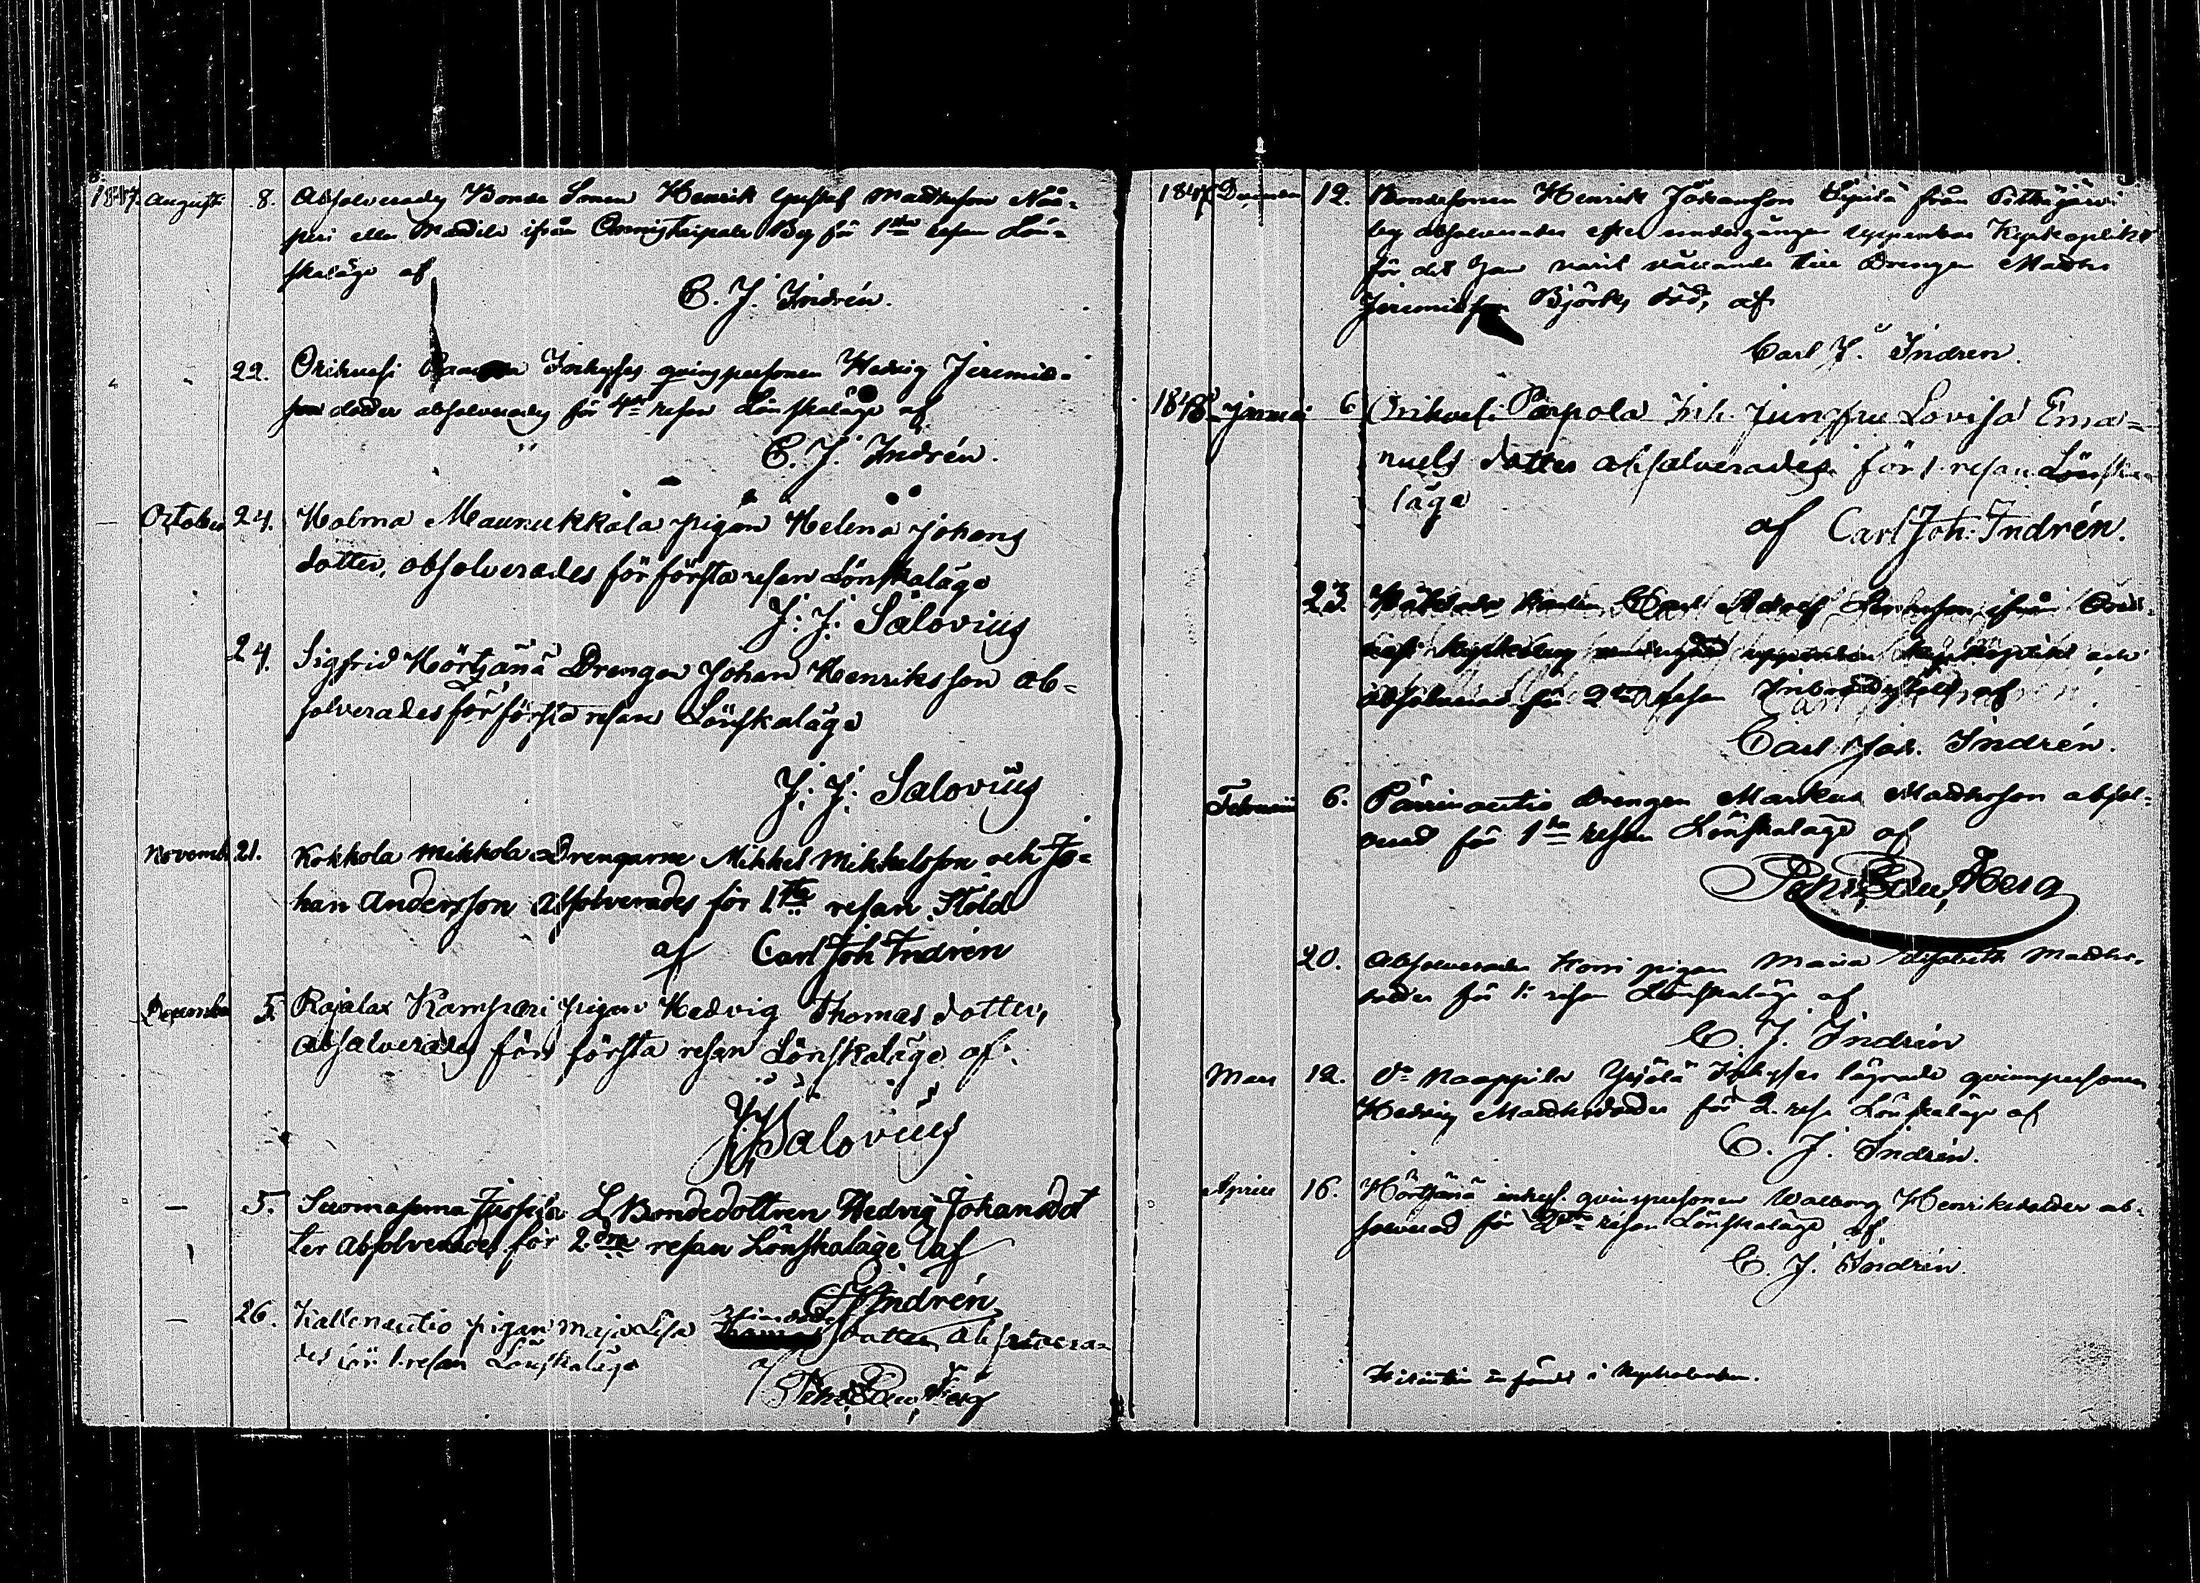 1847. Augusti 8. Absolverades Bonde Sonen Henrik Gustaf Matthsson Nås-
peri eller Mattila ifrån By för 1sta resan Lön-
skaläge af
C. J. Indrén.
22. Orihvesi Inhyses qvinspersonen Hedvig Jeremias-
dotter absolverades för 4de resan Lönskaläge af
C. J. Indrén.
October 24. Holma Maunukkala pigan Helena Johans
dotter, absolverades för första resan Lönskaläge
J. J. Salovius
24. Sigfrid Hörtjänä Drengen Johan Henriksson ab-
solverades för första resan Lönskaläge
J. J. Salovius
Novemb 21. Kokkola Mikkola Drengarne Mikkel Mikkelsson och Jo-
han Andersson absolverades för 1sta resan Stöld
af Carl Joh Indrén
December 5. Rajalax Kamppari pigan Hedvig Thomas dotter,
absolverades för första resan Lönskaläge af
J. J. Salovius
5. Suomasema Jussila Bondedottren Hedvig Johansdot
ter absolverades för 2dra resan Lönskaläge af
C J Indrén
26. Kallenautio pigan Maja Lisa dotter absolvera-
des för 1. resan Lönskaläge
1847 December 12. Bondesonen Henrik Johansson Eipilä från Pitkäjärvi
by absolverades efter undergången uppenbar Kyrkoplikt
för det han varit vållande till Drengen Matths
Jeremiasson Björks död, af
Carl J. Indren.
1848 Januari 6 Orihvesi Parpola Inh. Jungfru Lovisa Ema-
nuels dotter absolverades för 1. resan Lönska
läge
af Carl Joh. Indrén.
23. Carl Adolf ifrån Ori-
Kyrkoby undergått uppenbar Kyrkoplikt och
absolverad för 2dra resan Inbrottsstöld af
Carl Joh. Indrén.
Februarii 6. Pärrinautio Drengen Markus Matthsson absol-
verad för 1sta resan Lönskaläge af
20. Absolverades Horri pigan Maria Elisabeth Matths-
dotter för 1. resan Lönskaläge af
C. J. Indrén
Mars 12. Naappila Yrjölä Inhyses lägrade qvinnpersonen
Hedvig Matthsdotter för 2. resa Lönskaläge af
C. J. Indrén.
April 16. Hörtjänä inhys. qvinspersonen Walborg Henriksdotter ab-
solverad för resan Lönskaläge af
C. J. Indrén.
i Kyrkoboken.